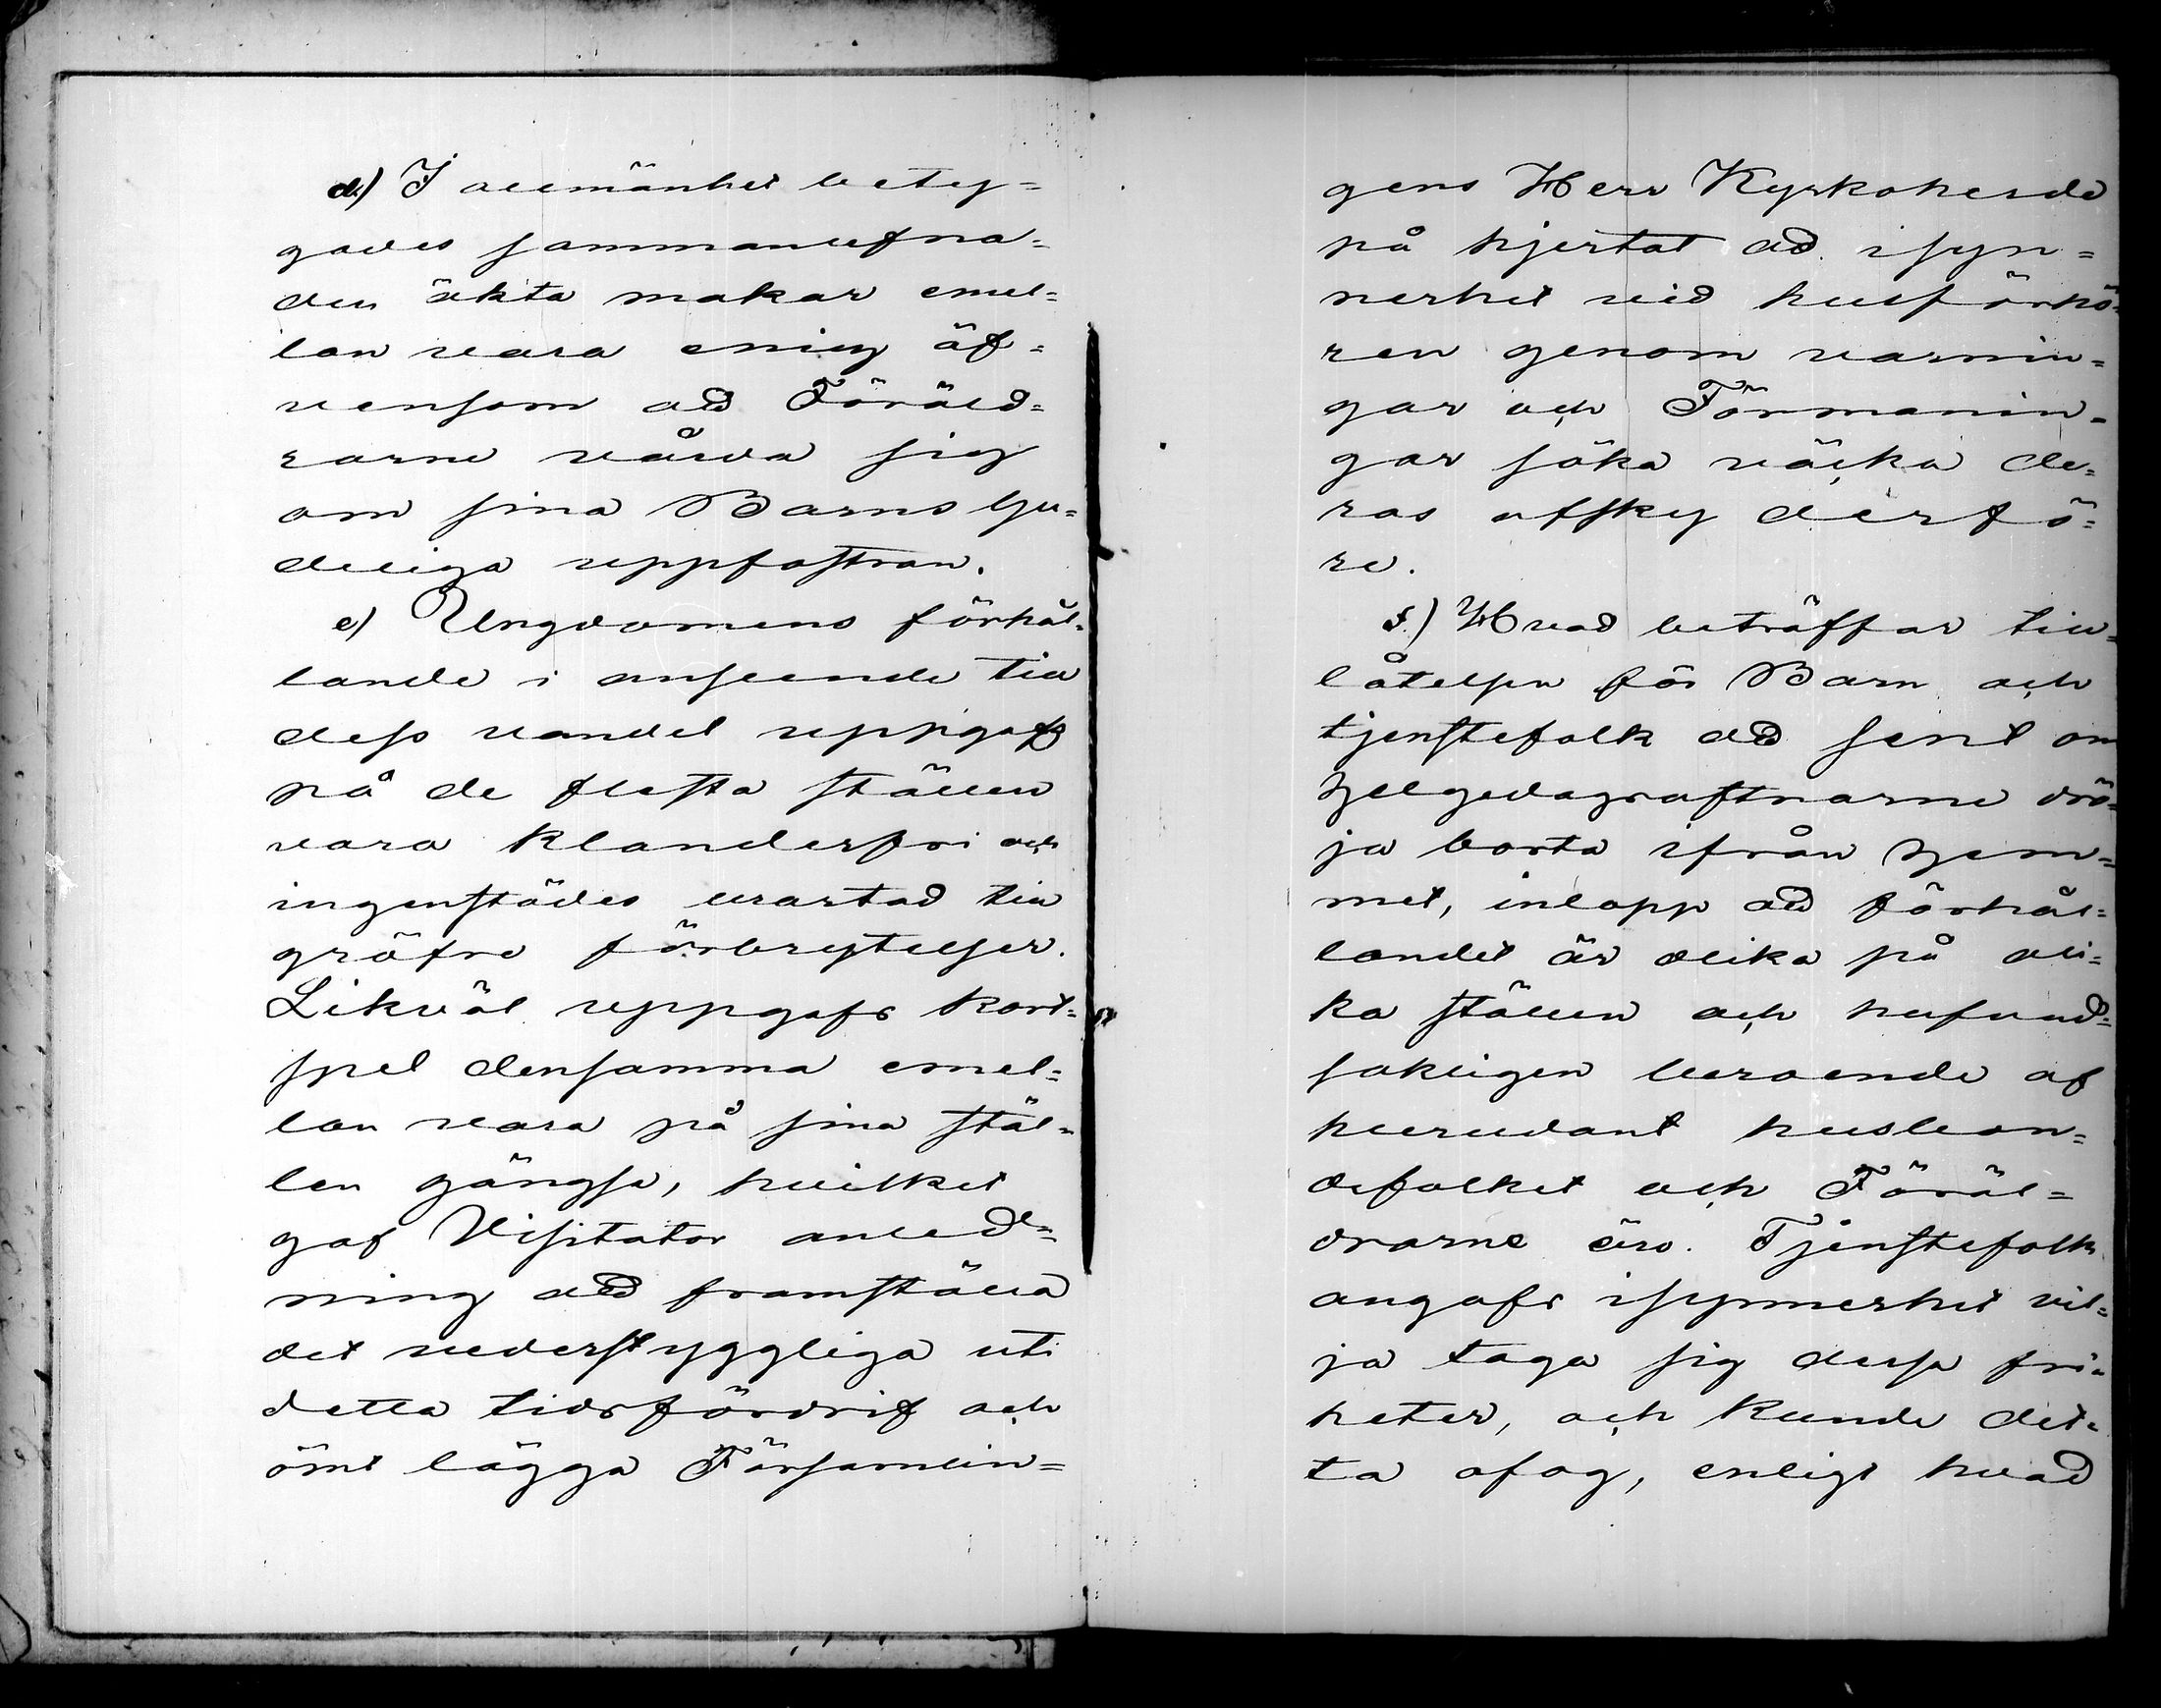 d.) I allmänhet bety=
gades sammanlefna=
den äkta makar emel=
lan vara enig äf=
vensom att Föräld=
rarne vårda sig
om sina Barns Gu=
deliga uppfostran.
e) Ungdomens förhål=
lande i anseende till
dess vandel uppgafs
på de flesta ställen
vara klanderfri och
ingenstädes urartad till
gröfre förbrytelser.
Likväl uppgafs kort=
spel densamma emel=
lan vara på sina stäl=
len gängse, hvilket
gaf Visitator anled=
ning att framställa
det vederstyggliga uti
detta tidsfördrif och
ömt lägga Församlin=
gens Herr Kyrkoherde
på hjertat att isyn=
nerhet vid husförhö=
ren genom varnin=
gar och Förmanin=
gar söka väcka de=
ras afsky derfö=
re.
f.) Hvad beträffar till=
låtelsen för Barn och
tjenstefolk att sent om
Helgedagsaftnarne drö=
ja borta ifrån Hem=
met, inlopp att förhål=
landet är olika på oli=
ka ställen och hufvud=
sakligen beroende af
hurudant husbon=
defolket och Föräl=
drarne äro. Tjenstefolk
angafs isynnerhet vil=
ja taga sig dessa fri=
heter, och kunde det=
ta ofog, enligt hvad